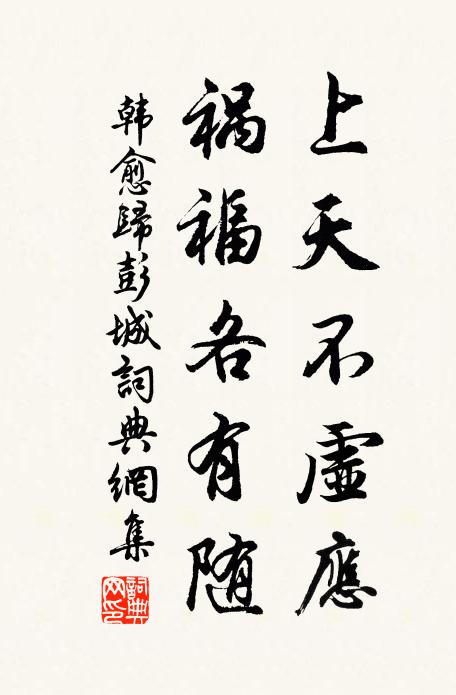 上天不虛應
祸福各有随
韩愈歸彭城詞典網集
詞典网印